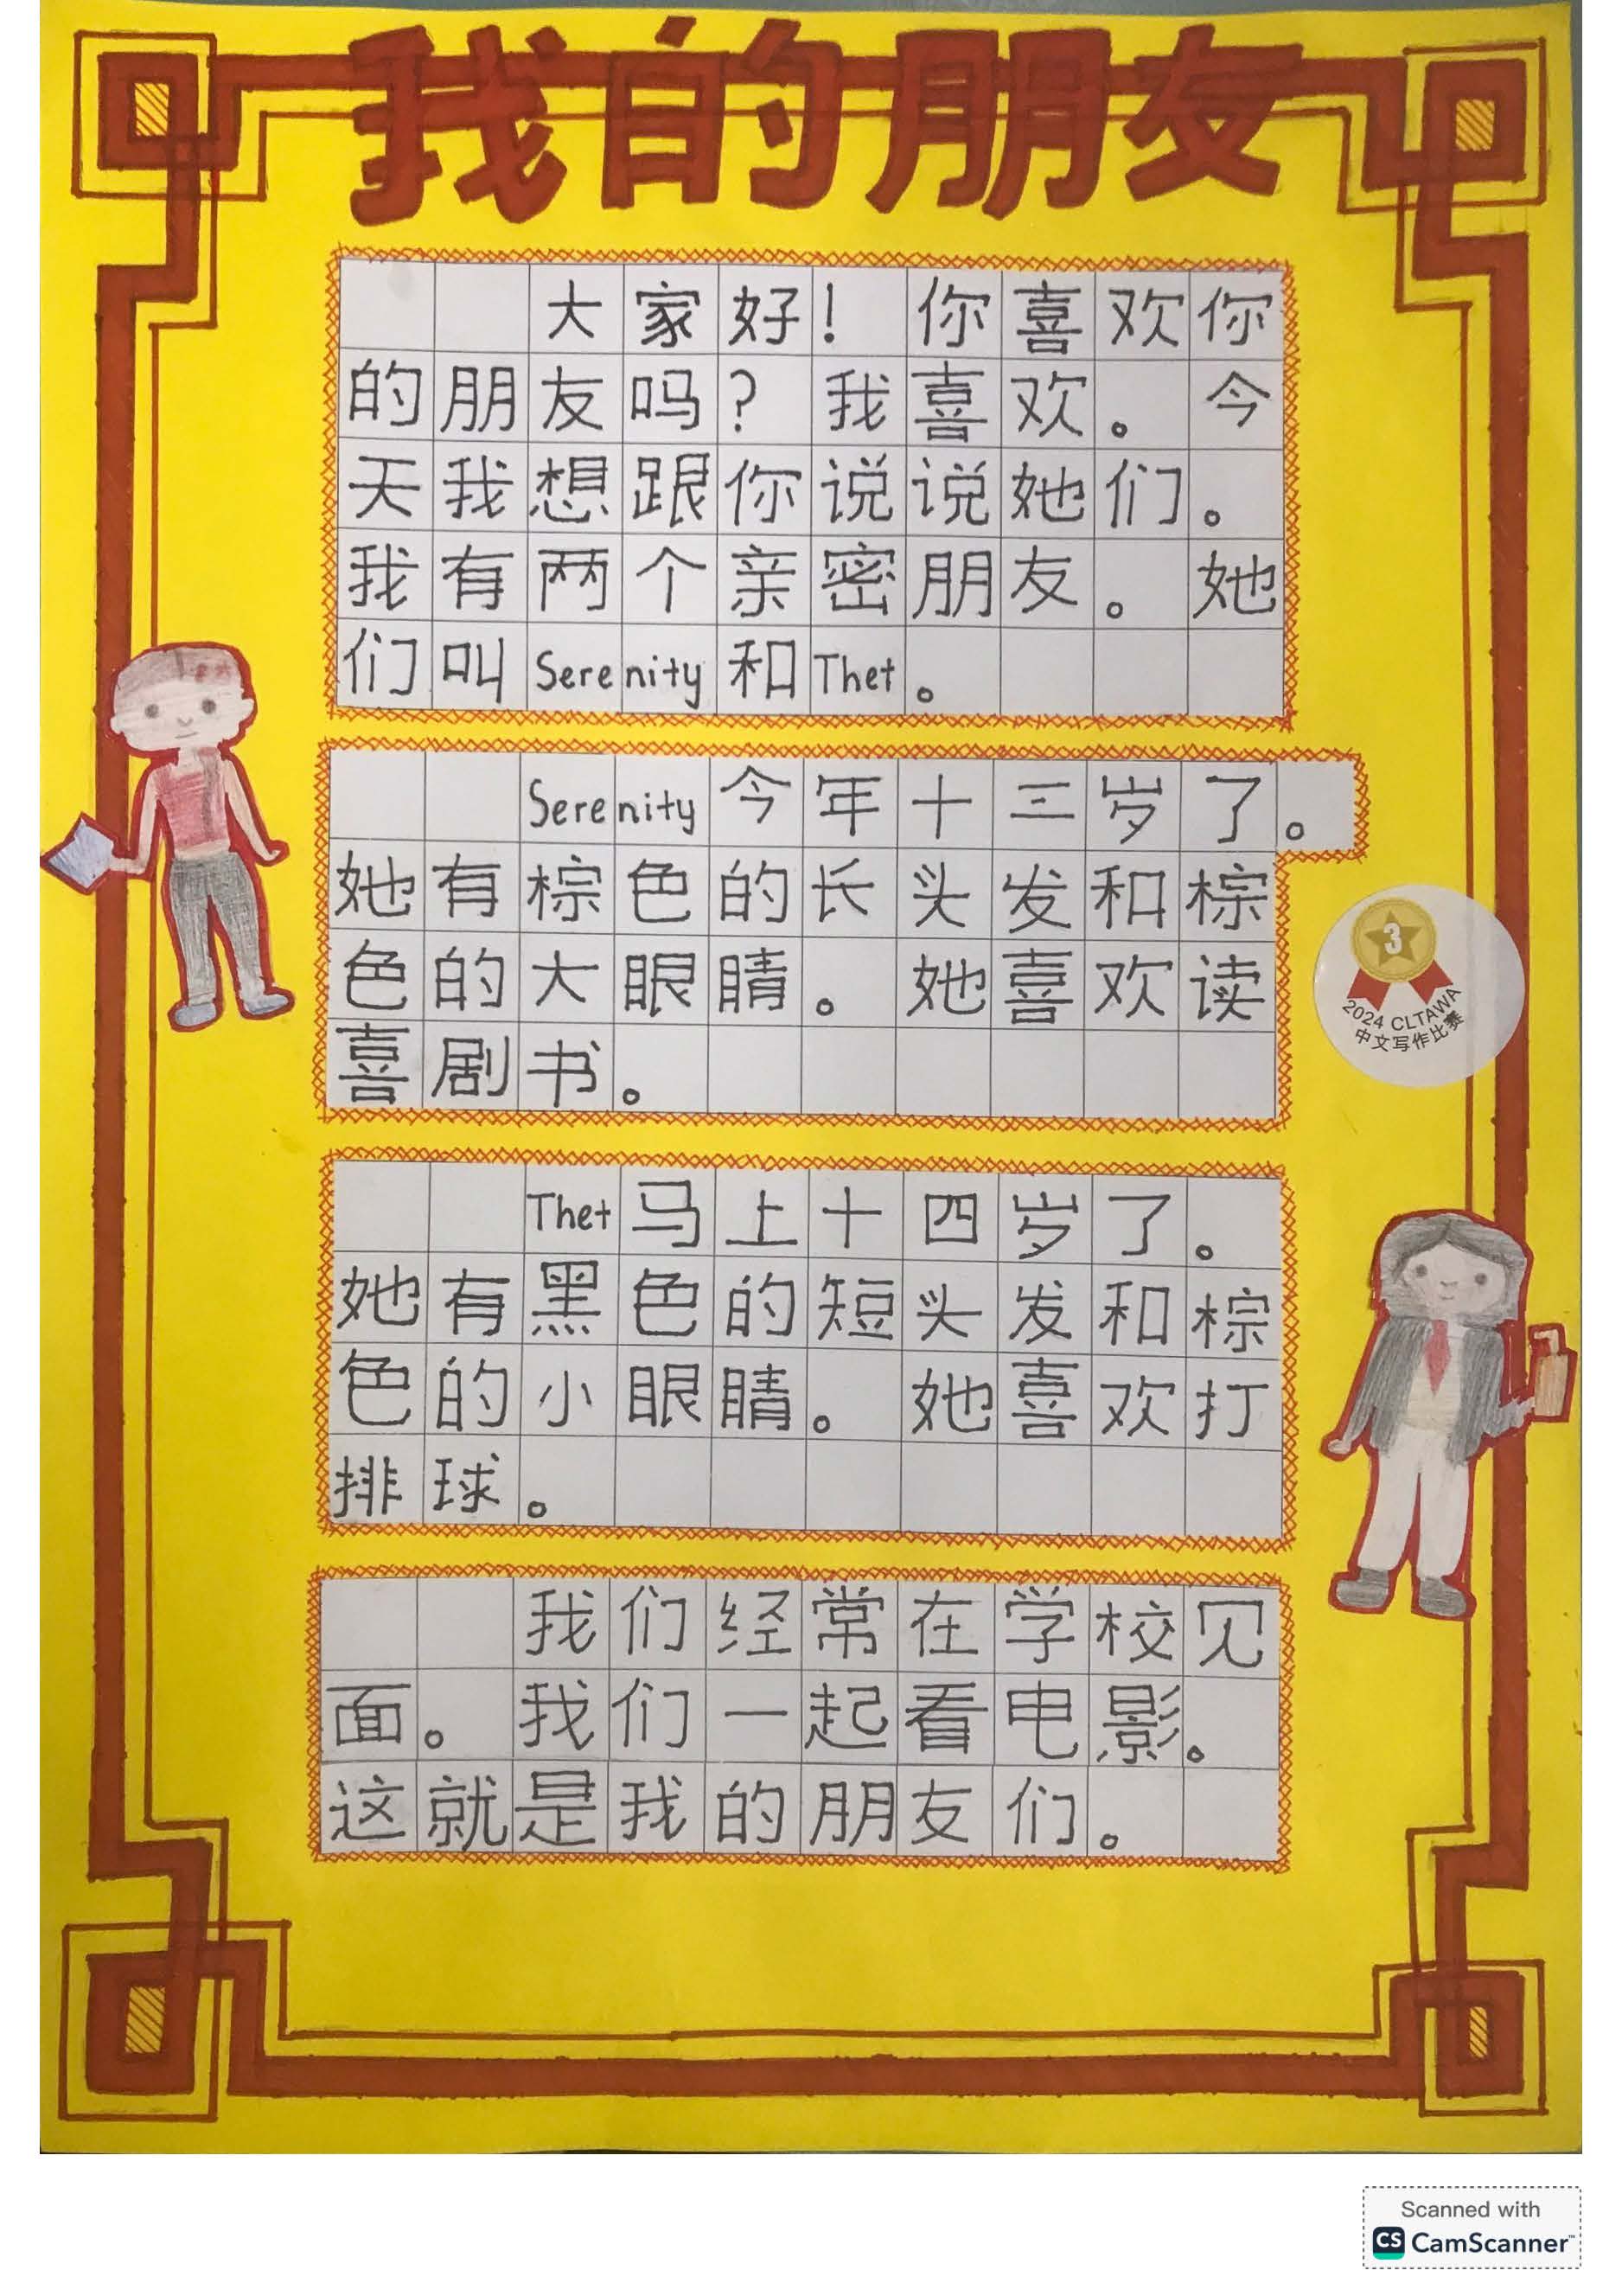 我的朋友
大家好！你喜欢你
的朋友吗？我喜欢。今
天我想跟你说说她们。
我有两个亲密朋友。她
们叫Serenity和Thet。
Serenity今年十三岁了。
她有棕色的长头发和棕
色的大眼睛。她喜欢读
喜剧书。
3
2024 CLTAWA
中文写作比赛
Thet马上十四岁了。
她有黑色的短头发和棕
色的小眼睛。她喜欢打
排球。
我们经常在学校见
面。我们一起看电影。
这就是我的朋友们。
Scanned with
CS CamScanner™